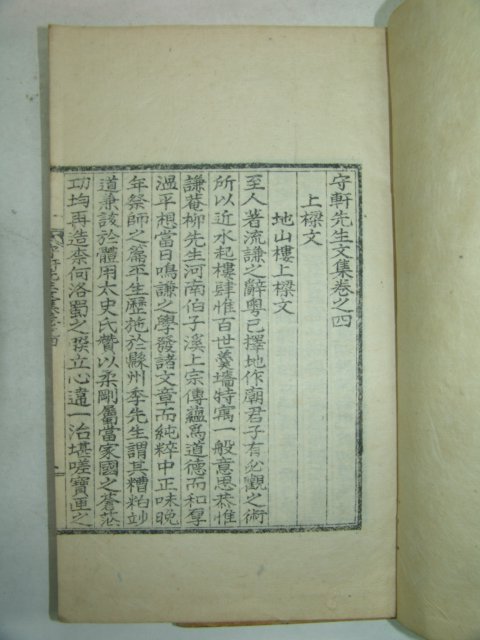 守軒先生文集卷之四
上樑文
地山樓上樑文
至人著流謙之辭粤已擇地作廟君子有必觀之術
所以近水起樓肆惟百世羹墻特寓一般意思恭惟
謙菴柳先生河南伯子溪上宗傳蘊爲道德而和厚
溫平想當日鳴謙之學發諸文章而純粹中正味晩
年祭師之篇平生歷施於縣州李先生謂其糟粕妙
道兼該於體用太史氏贊以柔剛屬當家國之蒼茫
功均再造柰何洛蜀之
立心違一治堪嗟寶匣之